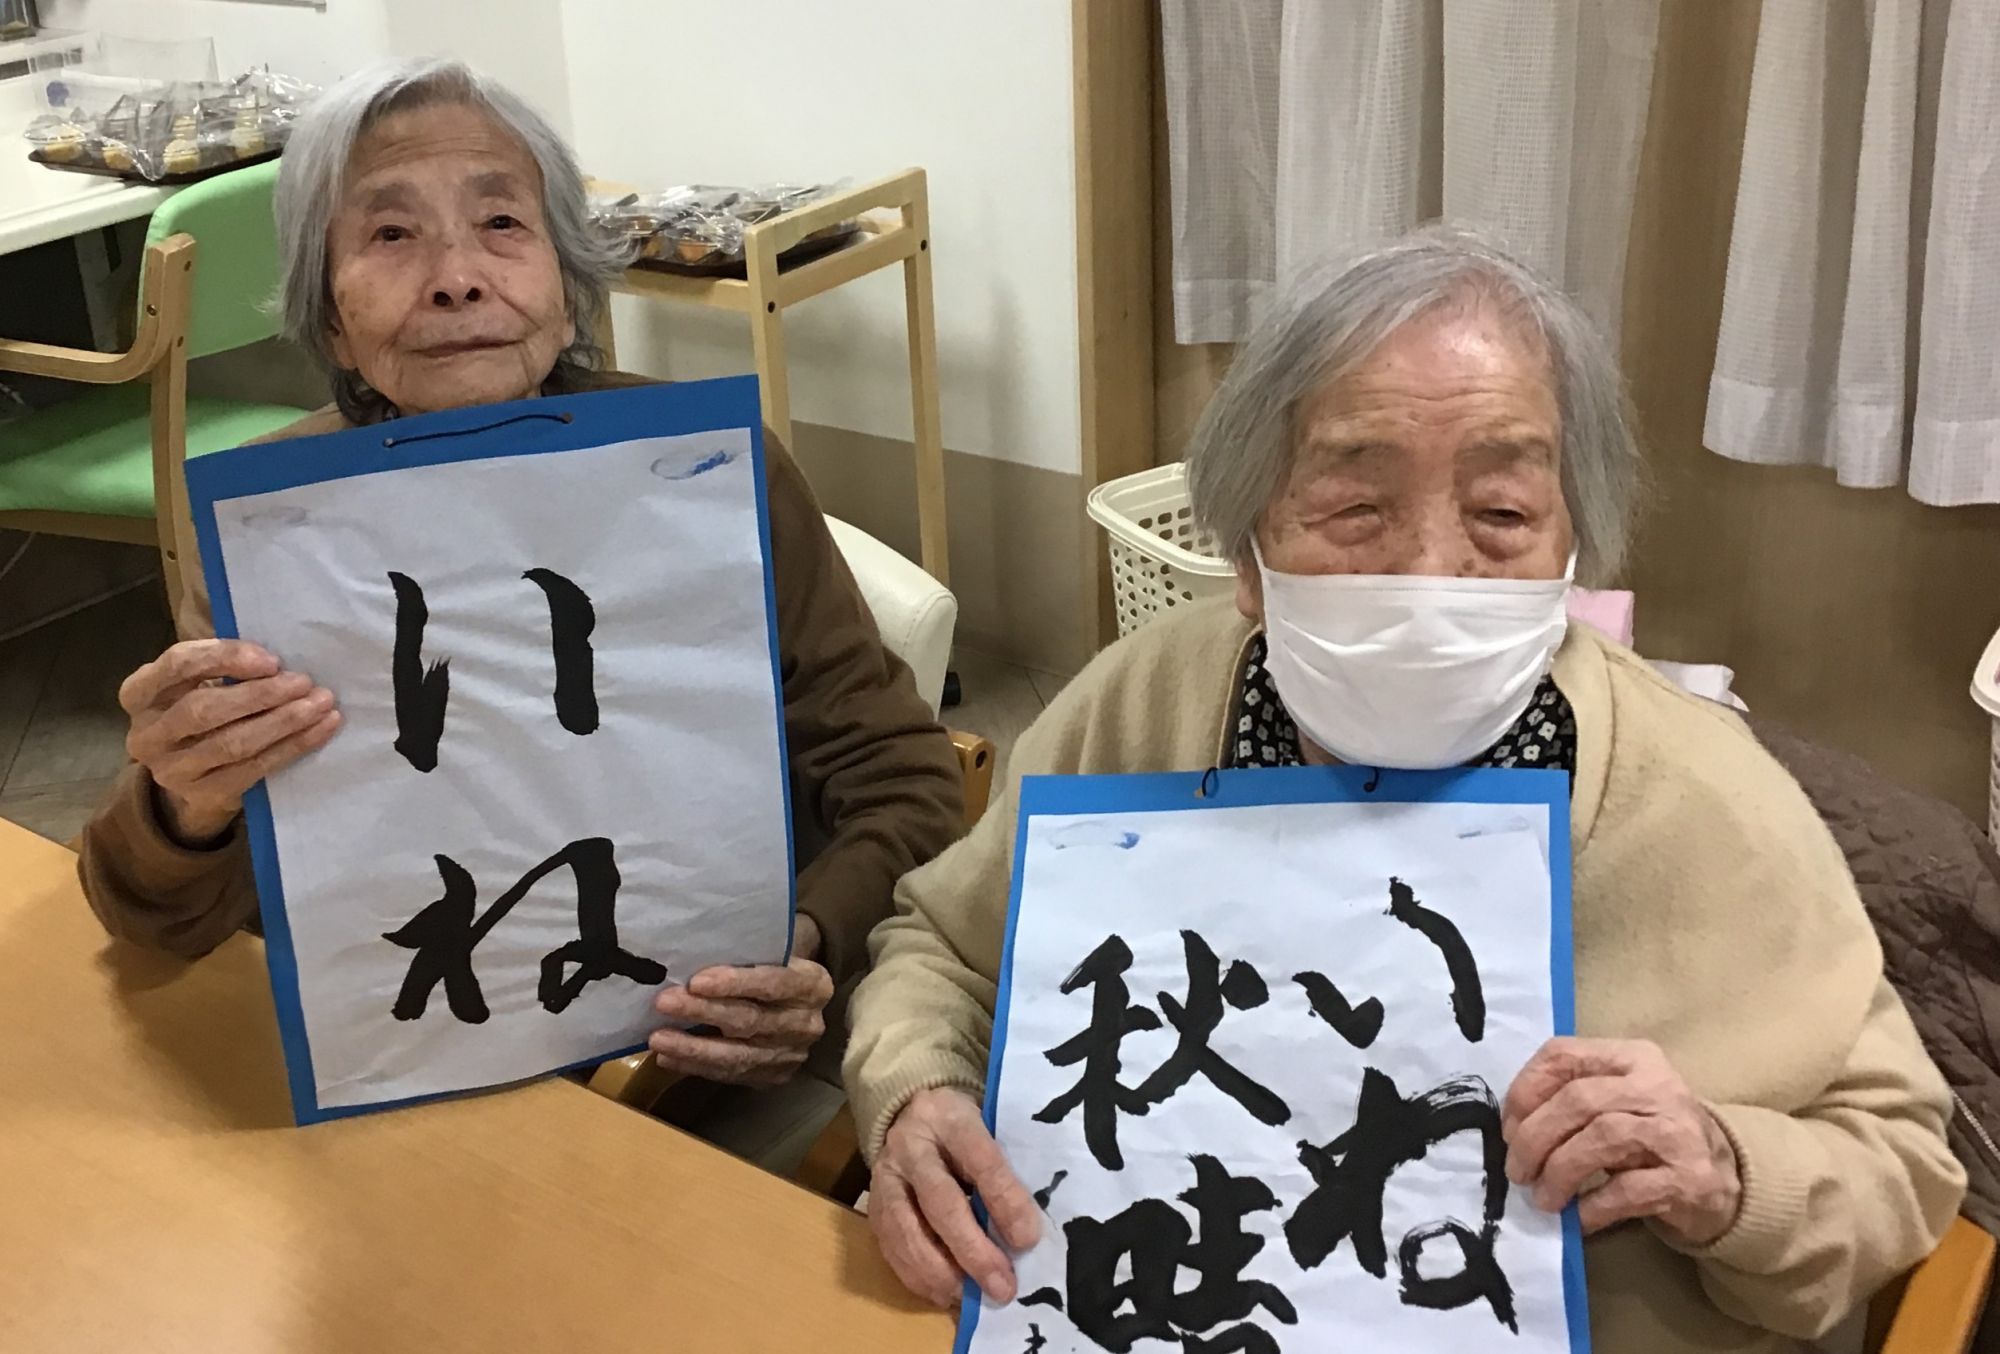 いね
いね
秋晴